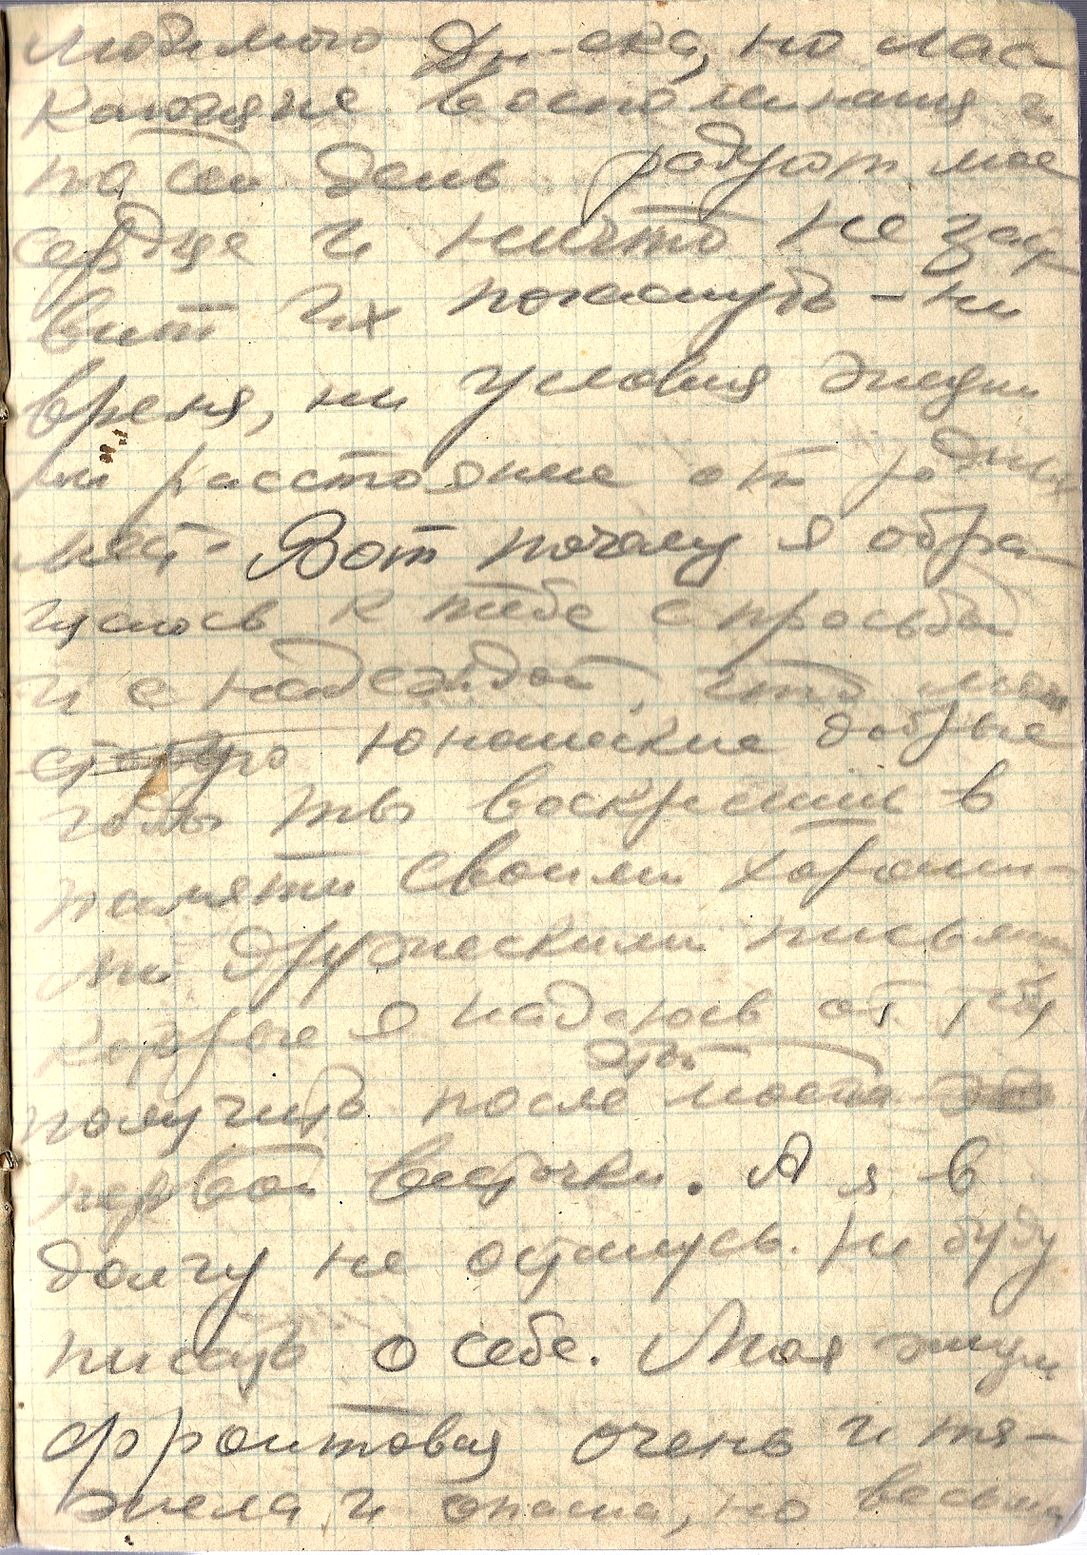 любимого Дн-ска, но лас
кающие воспоминания и
по сей день радуют мое
сердце и ничто не заста
вит их погаснуть – ни
время, ни условия жизни
ни расстояние от родных
мест. Вот почему я обра
щаюсь к тебе с просьбой
и с надеждой, что мои
юношеские добрые
годы ты воскресишь в
памяти своими хороши-
ми дружескими письмами
которые я надеюсь от тебя
получить после этой моей
первой весточки. А я в
долгу не останусь. Не буду
писать о себе. Моя жизнь
фронтовая очень и тя-
жела и опасна, но весьма